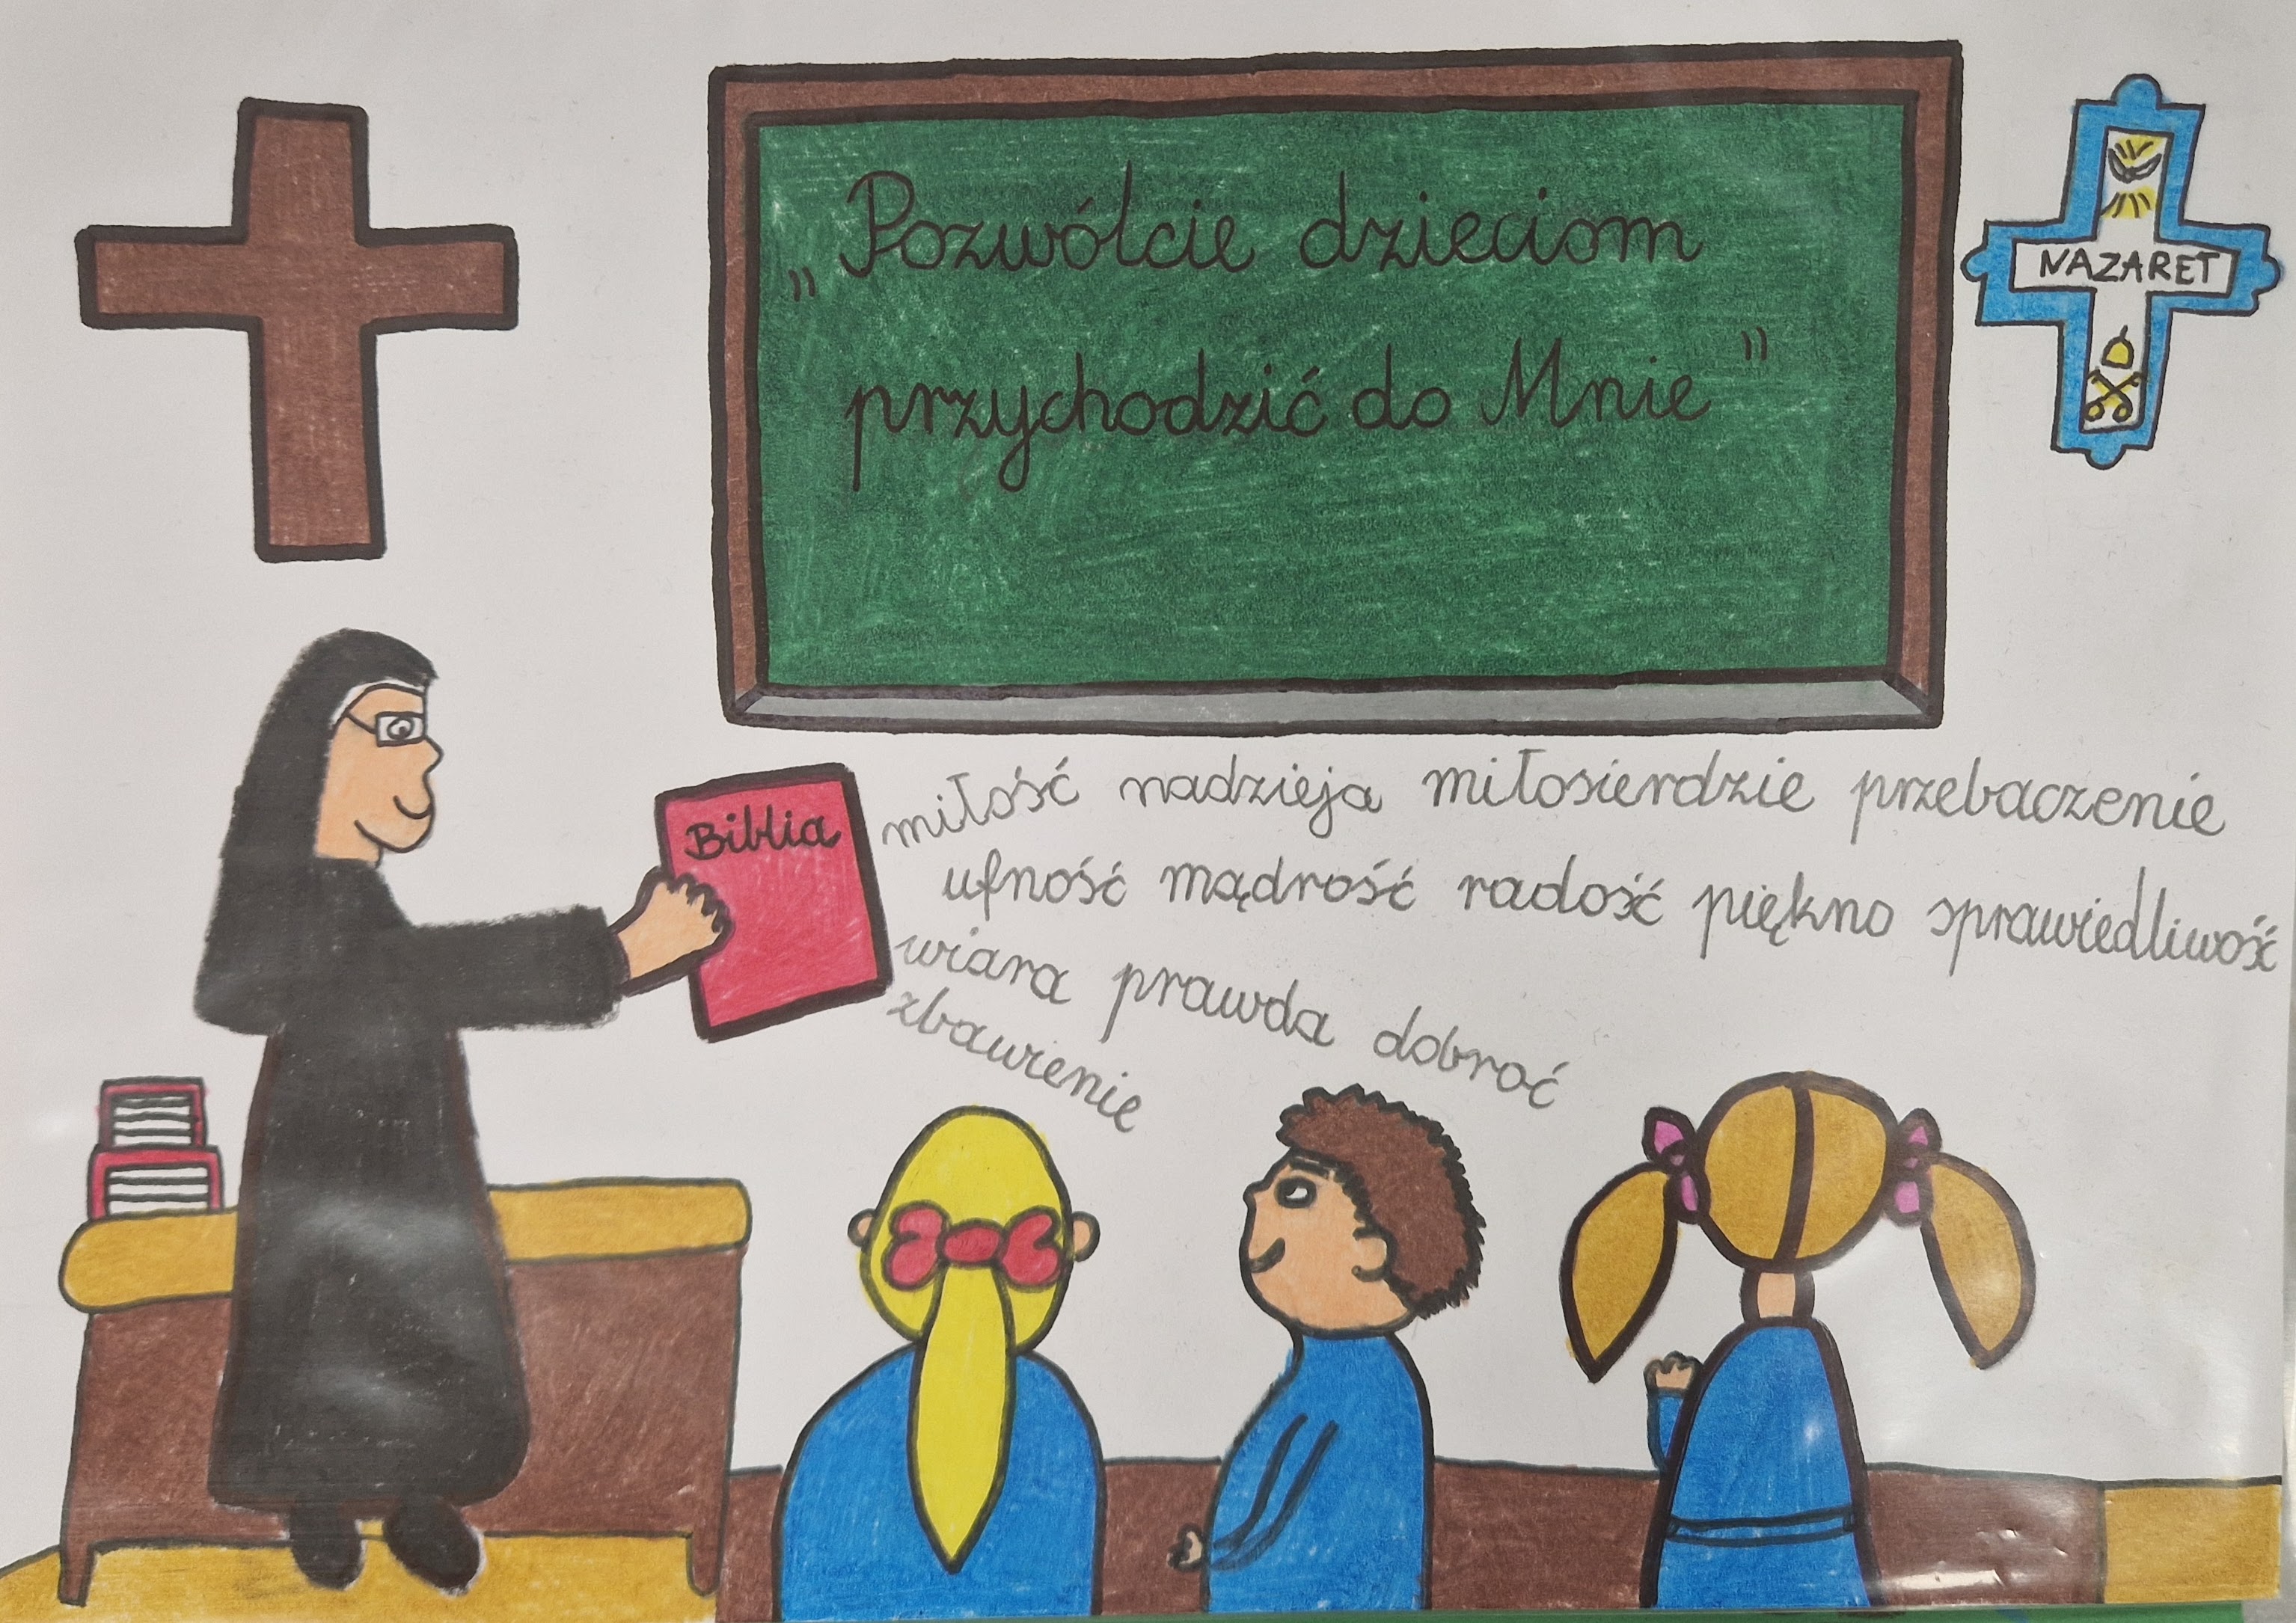 „Pozwólcie dzieciom
przychodzić do Mnie”
NAZARET
Biblia
miłość nadzieja miłosierdzie przebaczenie
ufność mądrość radość piękno sprawiedliwość
wiara prawda dobroć
zbawienie